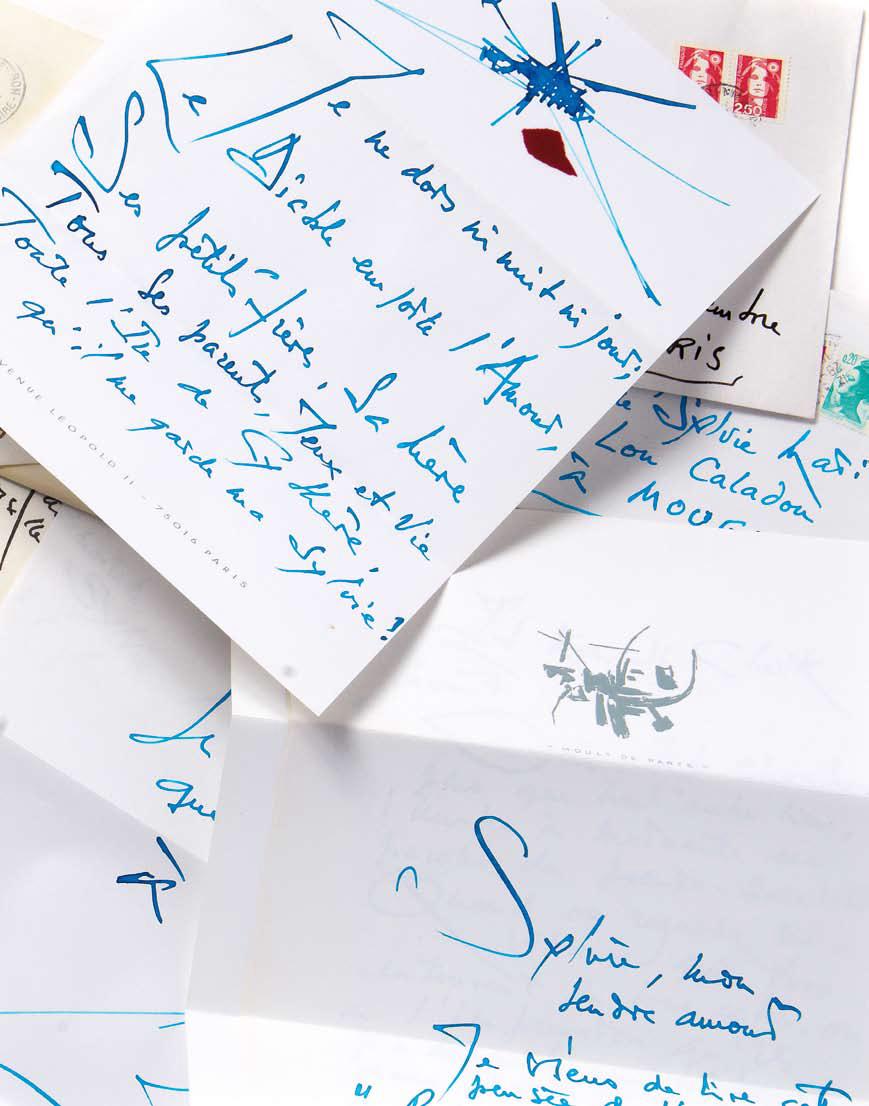 Je ne dors ni nuit ni jour;
Le Diable emporte l'Amour,
Ses petits frères, Sa hère
Tous Ses parents, Jeux et Vie
Toute l'Ile de Cythère
qu'il me garde ma Sylvie!
VENUE LEOPOLD II - 75016 PARIS
2.50
RIS
0,20
Sylvie
Lou Caladou
à MOUG
Je
que
À
Sylvie, mon
tendre amour
Je viens de lire cette
pensée